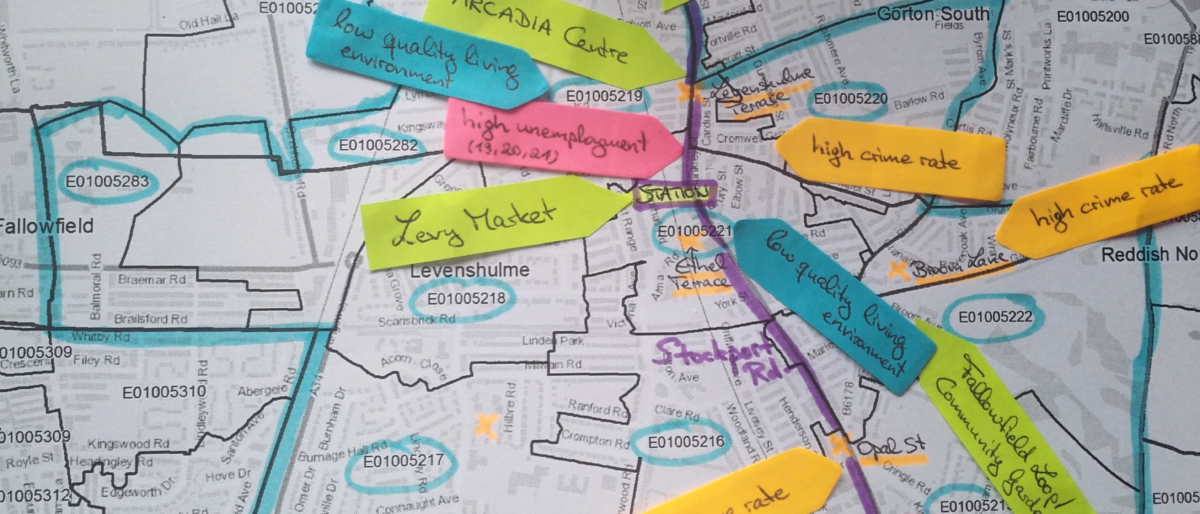 Old Hall La
E010052
ARCADIA Centre
Gorton South
Fields
E01005200
low quality living
environment
E01005219
Levenshulme
Terrace
E01005220
Barlow Rd
Kingsway
E01005282
high unemployment
(19,20,21)
Cromwe
high crime rate
high crime rate
E01005283
Fallowfield
Levy Market
STATION
Elbow St
E01005221
low quality living
environment
Ethel
Terrace
Broom Lane
Reddish No
Levenshulme
E01005218
Braemar Rd
Balmoral Rd
Brailsford Rd
Scansbrick Rd
York
E01005222
Whitby Rd
Linden Park
01005309
Crescent
Filey Rd
Acorn Close
Stockport
Rd
E01005310
Abergele
Burnham Dr
Ranford Rd
Clare Rd
Henderson
B6178
Fallowfield Loop/
Community Garde
01005309
Kingswood Rd
Royle St
Headingley Rd
Burnage Hall Rd
E01005217
Crompton Rd
E01005216
Opal St
Cringle Rd
Hove Dr
01005312
Edgeworth Dr
Omer Dr
Connaught Ave
rate
E0100521
E01005